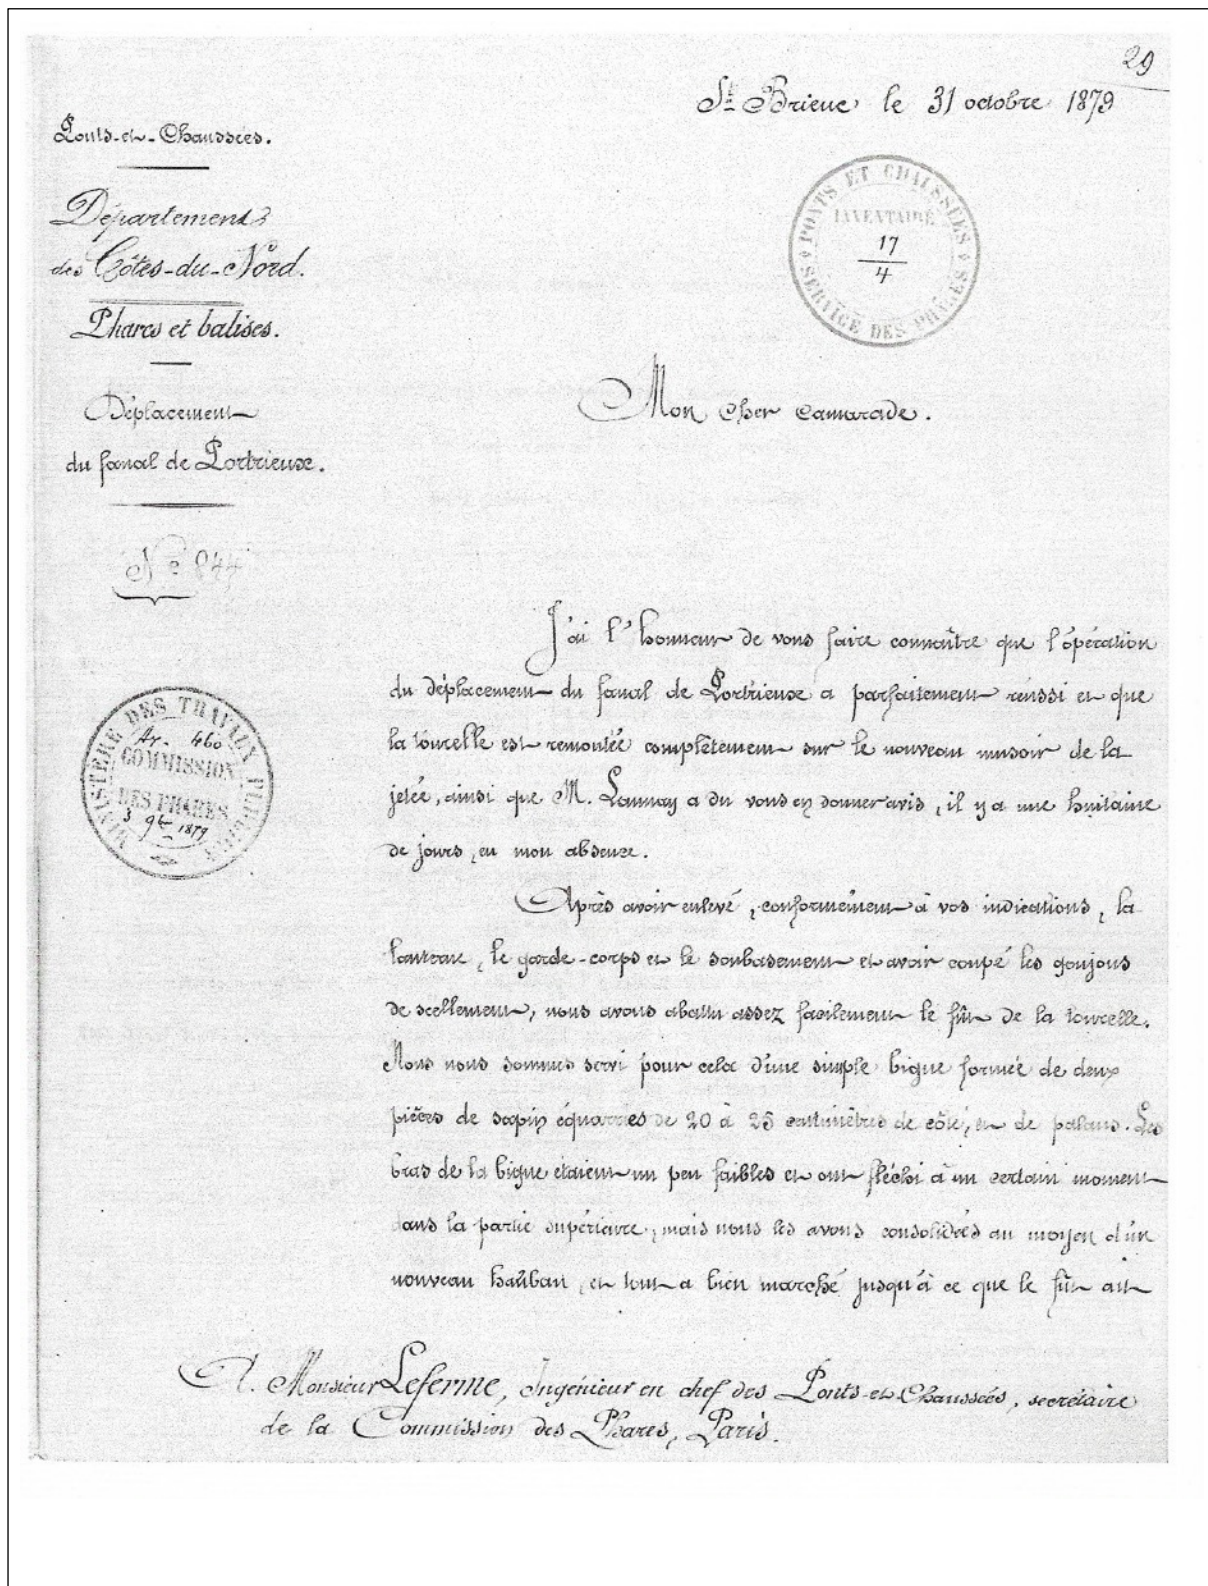 29
St Brieuc le 31 octobre 1879
Ponts-et-Chaussées.
Département
des Côtes-du-Nord.
Phares et balises.
Déplacement
du fanal de Portrieux.
N° 844
PONTS ET CHAUSSÉES
INVENTAIRE
17
4
SERVICE DES PHARES
Mon cher camarade.
MINISTÈRE DES TRAVAUX PUBLICS
460
COMMISSION
DES PHARES
3 9bre 1879
J'ai l'honneur de vous faire connaître que l'opération
du déplacement du fanal de Portrieux a parfaitement réussi et que
la tourelle est remontée complètement sur le nouveau musoir de la
jetée, ainsi que M. Launay a du vous en donner avis, il y a une huitaine
de jours, en mon absence.
Après avoir enlevé, conformément à vos indications, la
lanterne, le garde-corps et le soubasement et avoir coupé les goujons
de scellement, nous avons abattu assez facilement le fût de la tourelle.
Nous nous sommes servi pour cela d'une simple bigue formée de deux
pièces de sapin équarries de 20 à 25 centimètres de côté, et de palans. Les
bras de la bigue étaient un peu faibles et ont fléchi à un certain moment
dans la partie supérieure, mais nous les avons consolidés au moyen d'un
nouveau hauban, et tout a bien marché jusqu'à ce que le fût ait
A. Monsieur Leferme, Ingénieur en chef des Ponts-et-Chaussées, secrétaire
de la Commission des Phares, Paris.